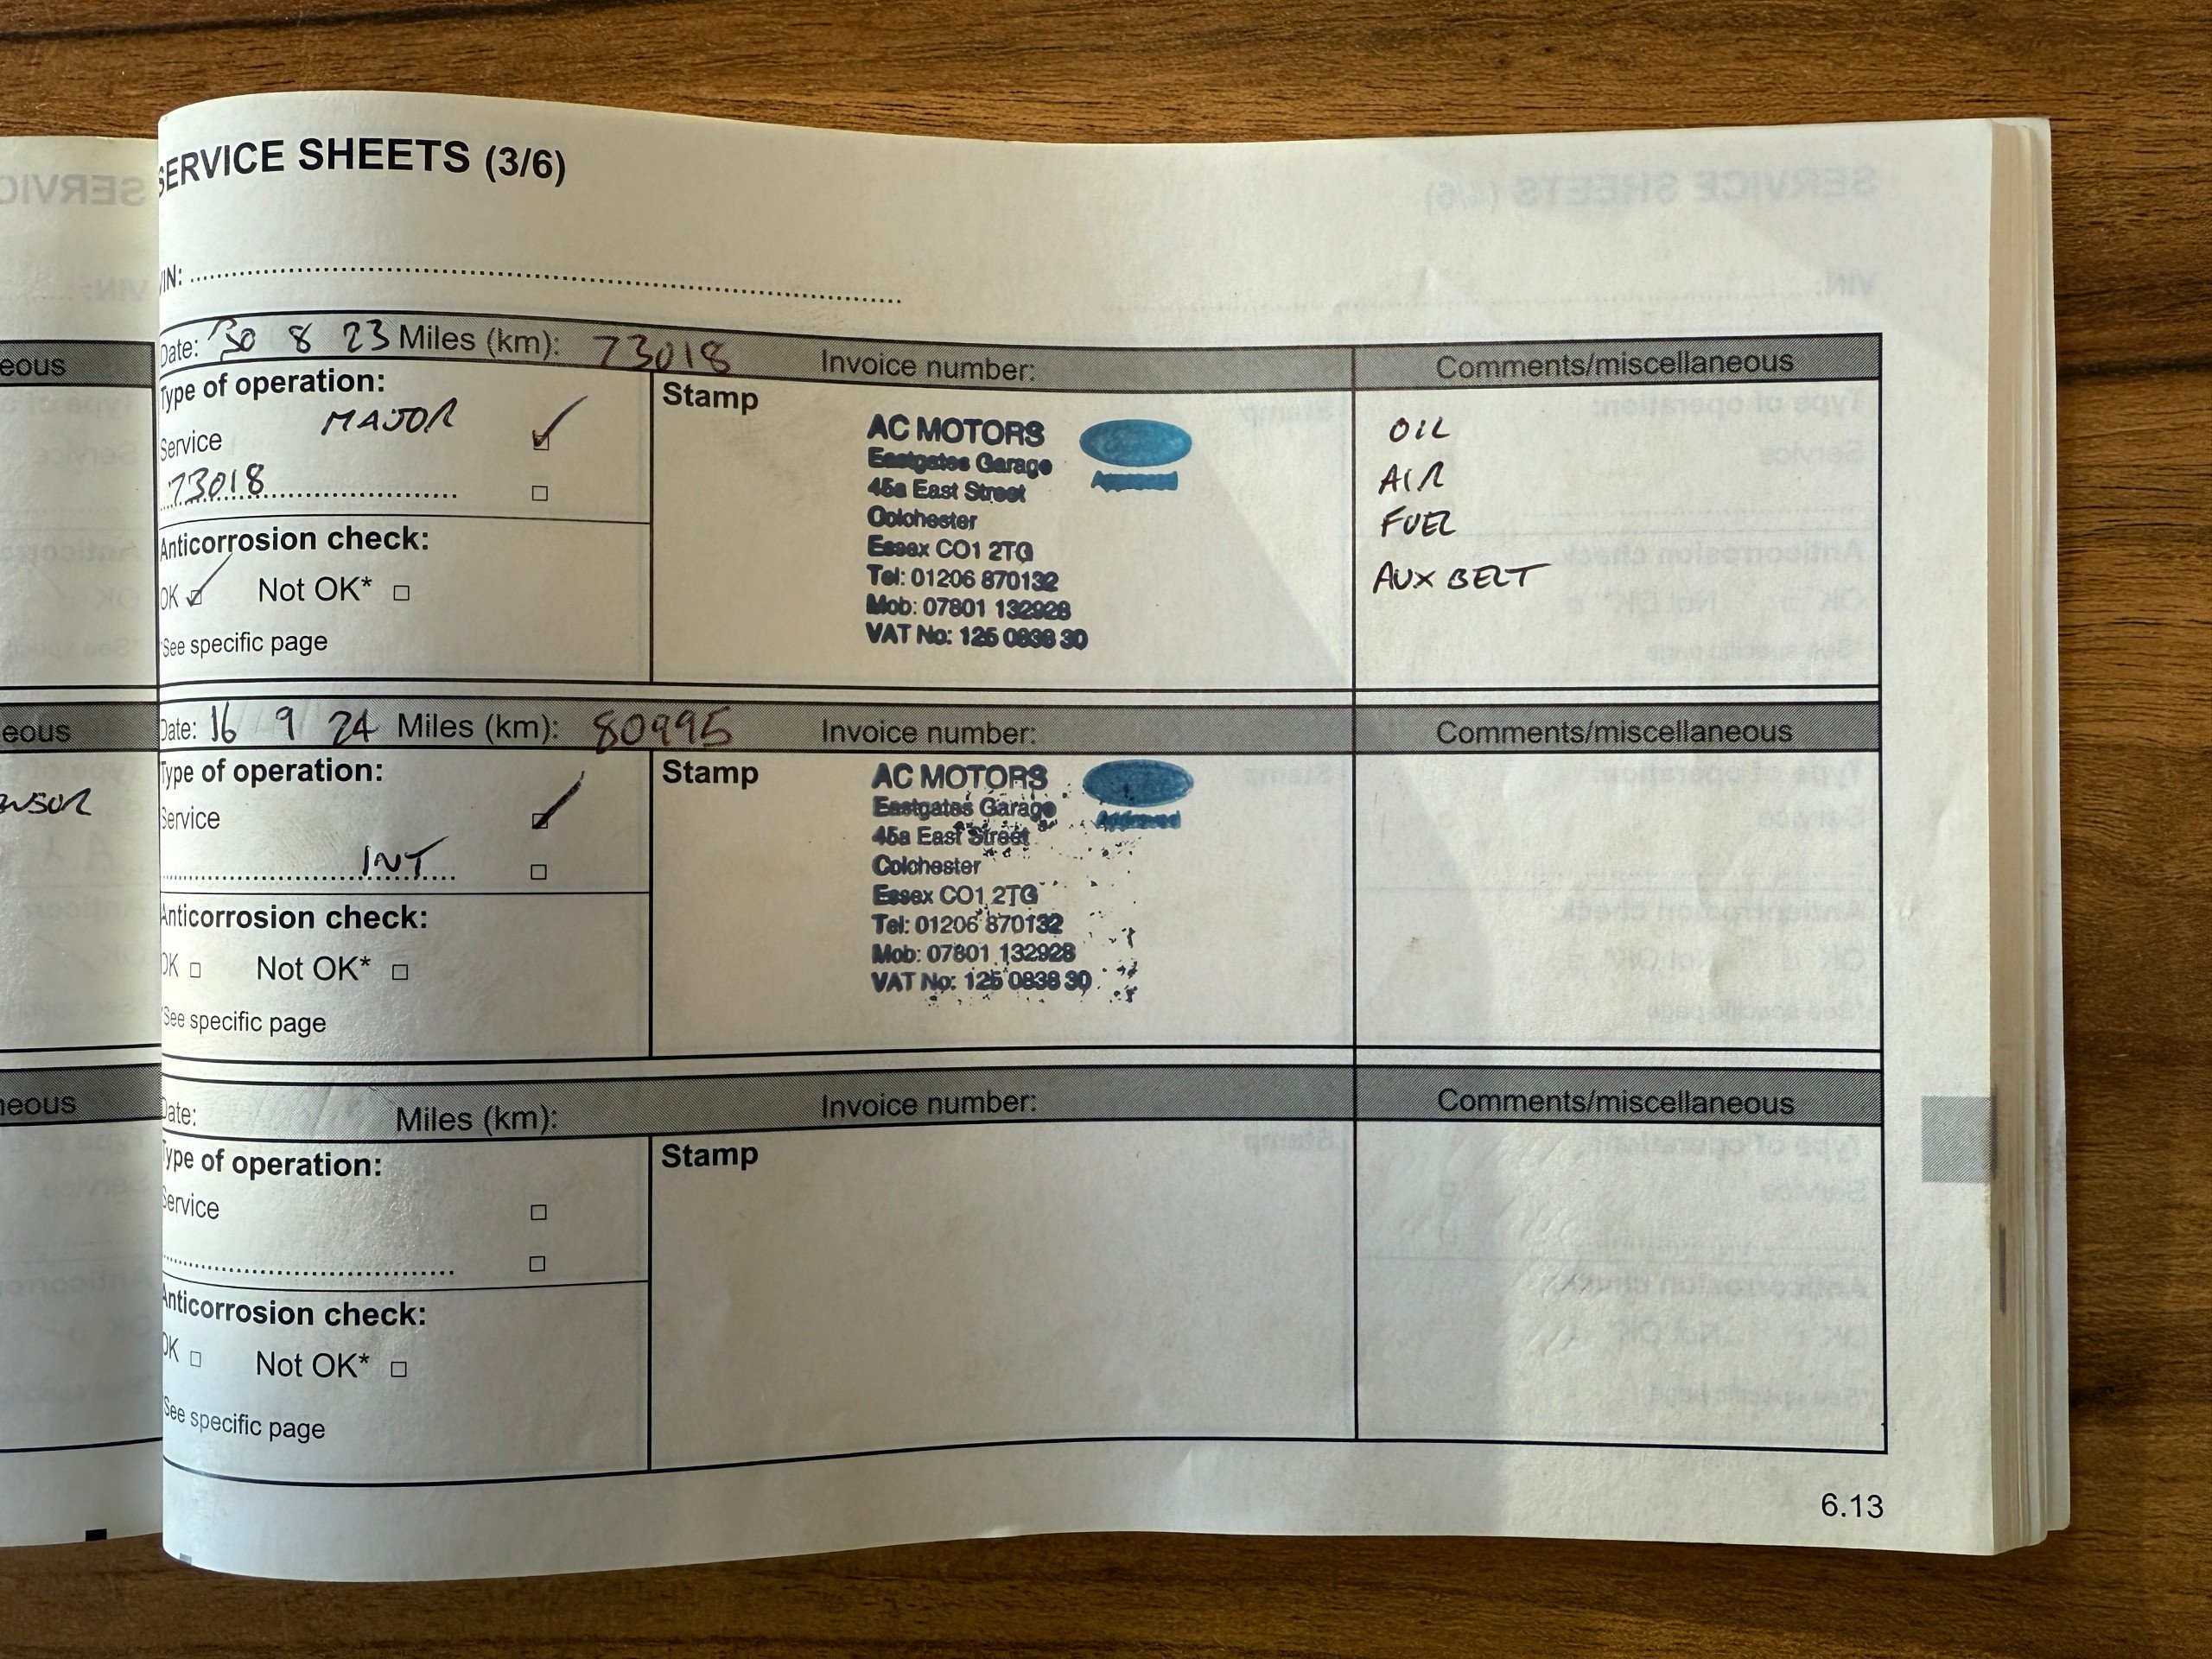 SERVICE SHEETS (3/6)
VIN:
Date: 30 8 23 Miles (km): 73018 Invoice number: Comments/miscellaneous
Type of operation:
Service MAJOR
73018
Anticorrosion check:
OK Not OK*
*See specific page
Stamp
AC MOTORS
Eastgates Garage
45a East Street
Colchester
Essex CO1 2TG
Tel: 01206 870132
Mob: 07801 132928
VAT No: 125 0838 30
Approved
OIL
AIR
FUEL
AUX BELT
Date: 16 9 24 Miles (km): 80995 Invoice number: Comments/miscellaneous
Type of operation:
Service
INT
Anticorrosion check:
OK Not OK*
*See specific page
Stamp
AC MOTORS
Eastgates Garage
45a East Street
Colchester
Essex CO1 2TG
Tel: 01206 870132
Mob: 07801 132928
VAT No: 125 0838 30
Approved
Date: Miles (km): Invoice number: Comments/miscellaneous
Type of operation:
Service
Anticorrosion check:
OK Not OK*
*See specific page
Stamp
6.13